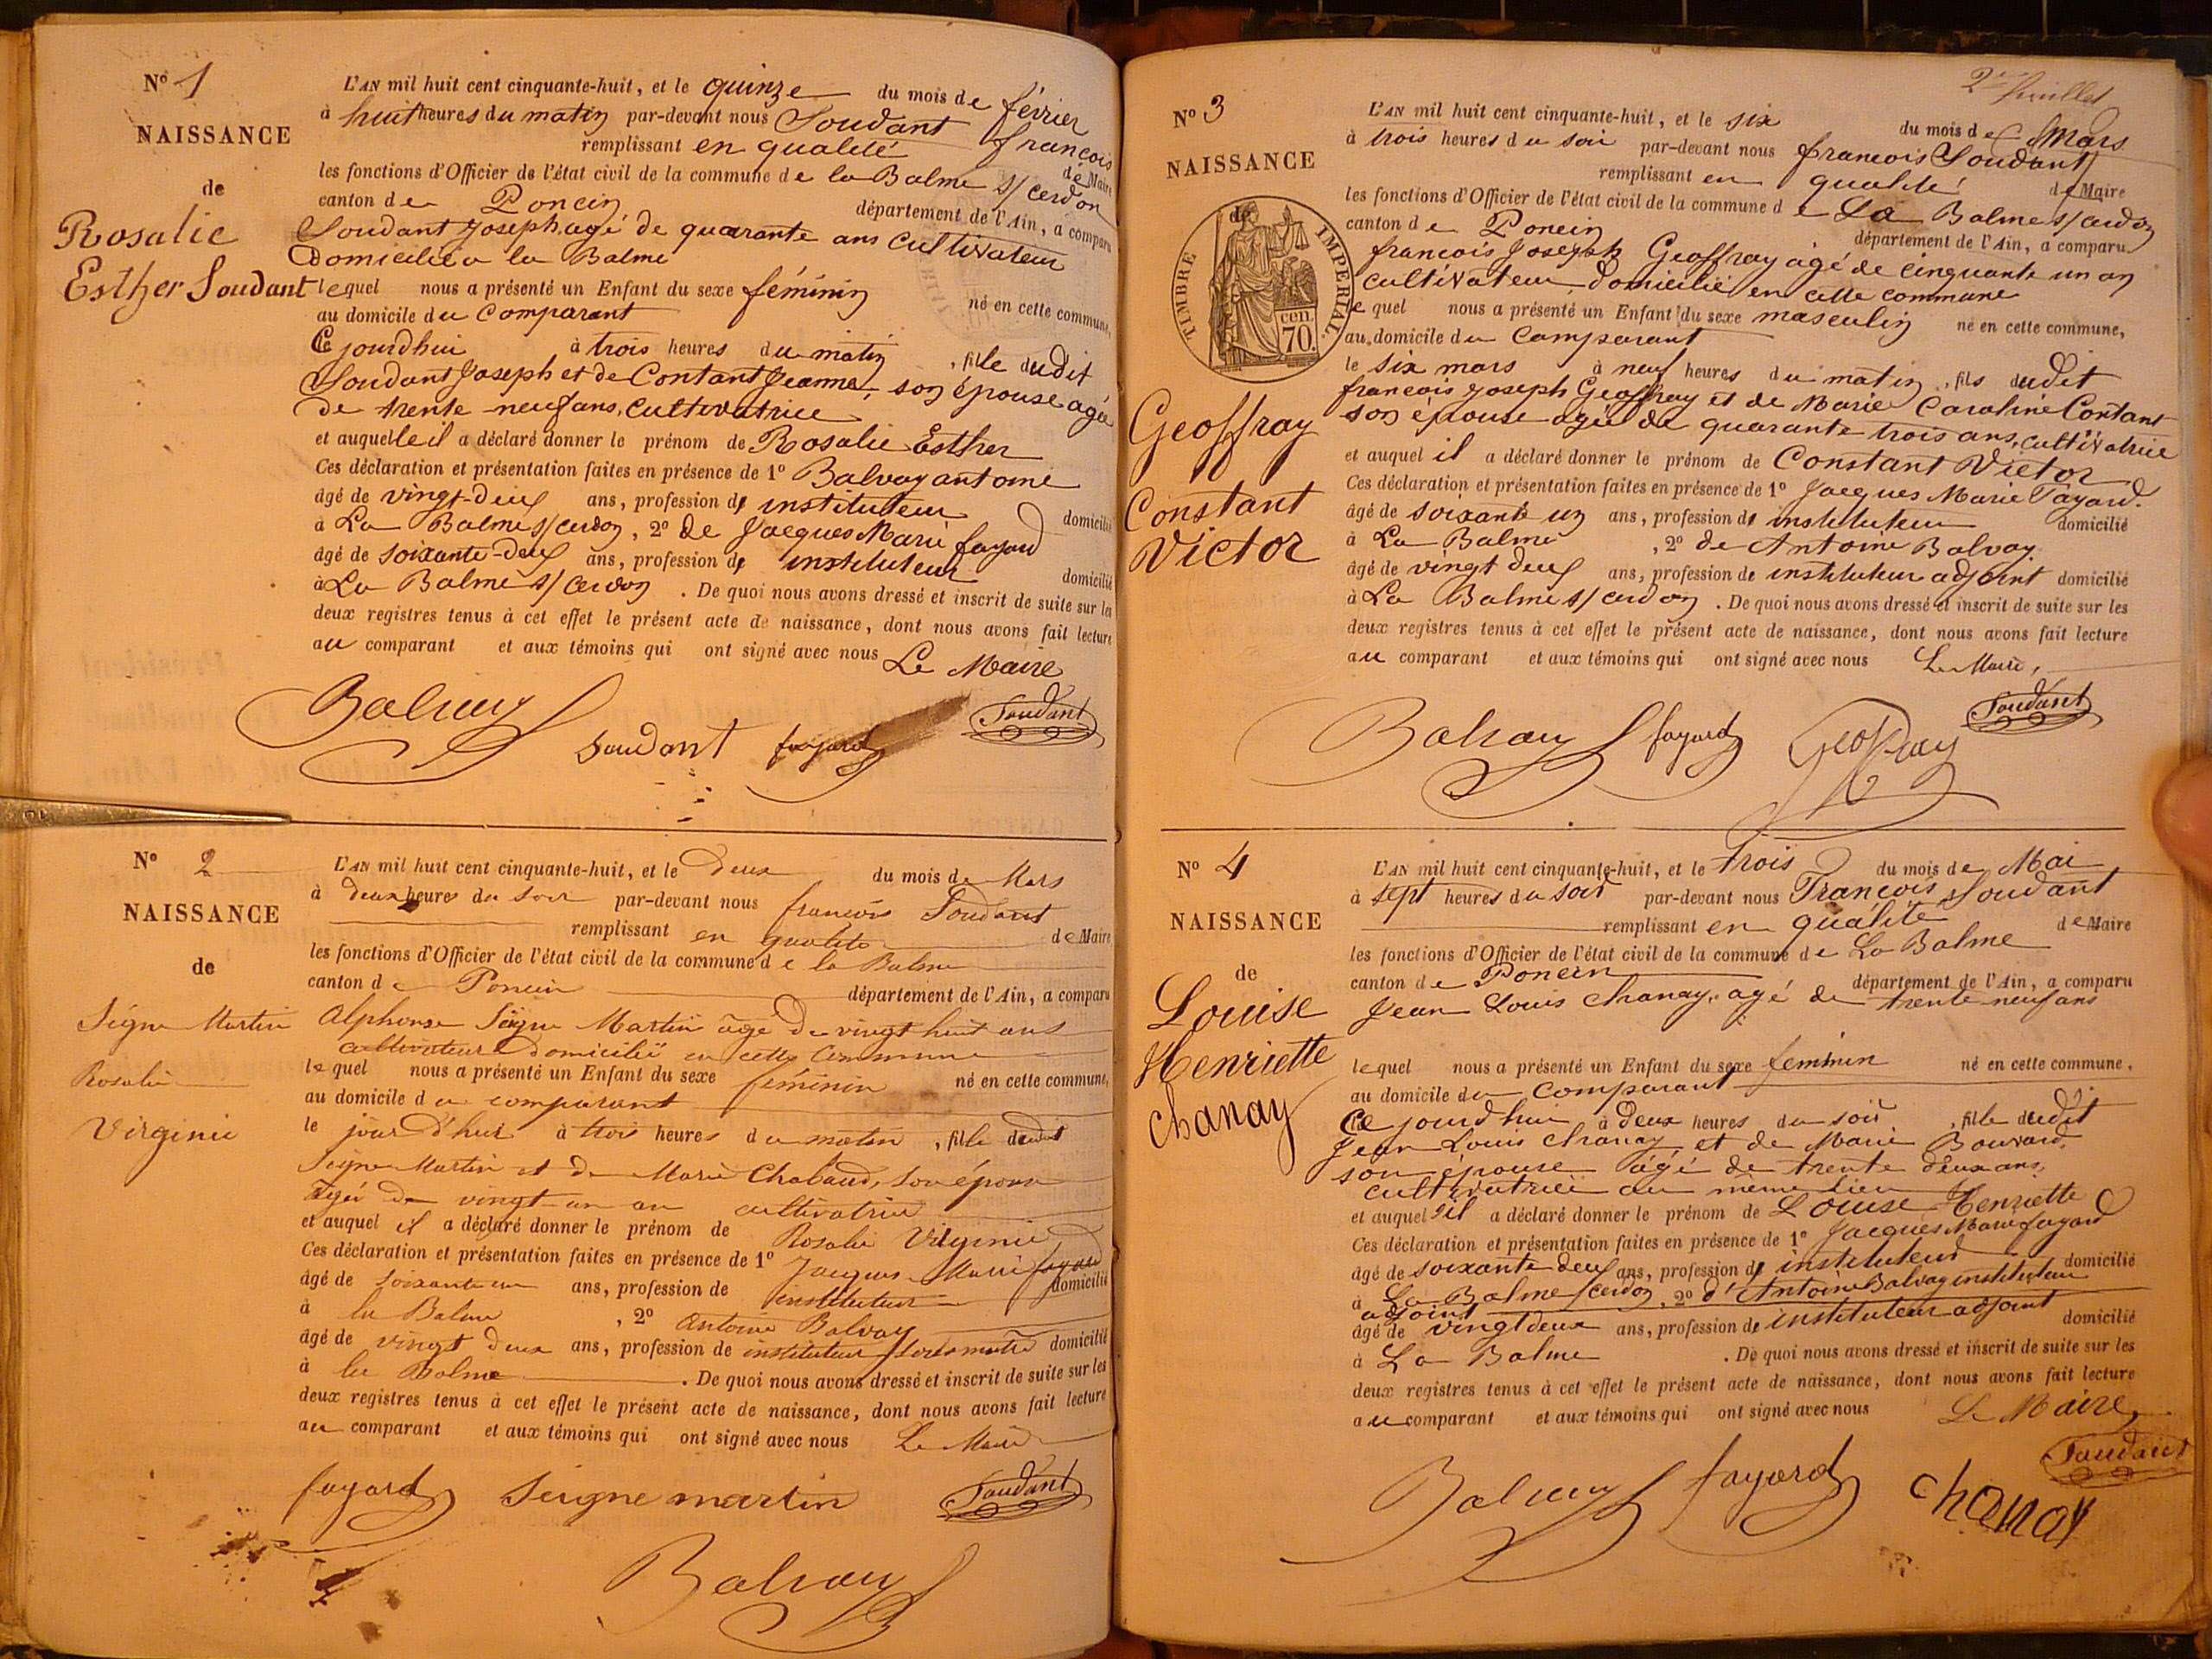 N° 1
NAISSANCE
de
Rosalie
Esther Soudant
L'AN mil huit cent cinquante-huit, et le quinze du mois de février
à huit heures du matin par-devant nous Soudant françois
remplissant en qualité de Maire
les fonctions d'Officier de l'état civil de la commune de la Balme s/ cerdon
canton de Poncin département de l'Ain, a comparu
Soudant Joseph agé de quarante ans cultivateur
Domicilié a la Balme
lequel nous a présenté un Enfant du sexe féminin né en cette commune,
au domicile du comparant
Ce jourdhui à trois heures du matin, fille dudit
Soudant Joseph et de Contant Jeanne, son épouse agée
de trente neuf ans, cultivatrice
et auquelle il a déclaré donner le prénom de Rosalie Esther
Ces déclaration et présentation faites en présence de 1° Balvay antoine
âgé de vingt-deux ans, profession d instituteur domicilié
à La Balme s/ cerdon, 2° de Jacques Marie fayard
âgé de soixante-deux ans, profession d instituteur domicilié
à La Balme s/ cerdon. De quoi nous avons dressé et inscrit de suite sur les
deux registres tenus à cet effet le présent acte de naissance, dont nous avons fait lecture
au comparant et aux témoins qui ont signé avec nous Le Maire
Balvay Soudant fayard Soudant
N° 2
NAISSANCE
de
Seigne Martin
Rosalie
Virginie
L'AN mil huit cent cinquante-huit, et le deux du mois de Mars
à deux heures du soir par-devant nous françois Soudant
remplissant en qualité de Maire
les fonctions d'Officier de l'état civil de la commune de la Balme
canton de Poncin département de l'Ain, a comparu
Alphonse Seigne Martin âgé de vingt huit ans
cultivateur domicilié en cette commune
lequel nous a présenté un Enfant du sexe féminin né en cette commune,
au domicile du comparant
le jour d'hui à trois heures du matin, fille dudit
Seigne Martin et de Marie Chabaud, son épouse
agée de vingt un an cultivatrice
et auquel il a déclaré donner le prénom de Rosalie Virginie
Ces déclaration et présentation faites en présence de 1° Jacques Marie fayard
âgé de soixante un ans, profession de instituteur domicilié
à la Balme, 2° Antoine Balvay
âgé de vingt deux ans, profession de instituteur sous maître domicilié
à la Balme. De quoi nous avons dressé et inscrit de suite sur les
deux registres tenus à cet effet le présent acte de naissance, dont nous avons fait lecture
au comparant et aux témoins qui ont signé avec nous Le Maire
fayard Seigne martin Soudant
Balvay
2e feuillet
N° 3
NAISSANCE
de
TIMBRE IMPERIAL
70 cen.
Geoffray
Constant
Victor
L'AN mil huit cent cinquante-huit, et le six du mois de Mars
à trois heures du soir par-devant nous francois Soudant
remplissant en qualité de Maire
les fonctions d'Officier de l'état civil de la commune de La Balme s/ cerdon
canton de Poncin département de l'Ain, a comparu
francois Joseph Geoffray agé de cinquante un an
cultivateur domicilié en cette commune
lequel nous a présenté un Enfant du sexe masculin né en cette commune,
au domicile du comparant
le six mars à neuf heures du matin, fils dudit
francois Joseph Geoffray et de Marie Caroline Contant
son épouse agée de quarante trois ans, cultivatrice
et auquel il a déclaré donner le prénom de Constant Victor
Ces déclaration et présentation faites en présence de 1° Jacques Marie Fayard.
âgé de soixante un ans, profession d instituteur domicilié
à La Balme, 2° de Antoine Balvay.
âgé de vingt deux ans, profession de instituteur adjoint domicilié
à La Balme s/ cerdon. De quoi nous avons dressé et inscrit de suite sur les
deux registres tenus à cet effet le présent acte de naissance, dont nous avons fait lecture
au comparant et aux témoins qui ont signé avec nous Le Maire,
Balvay fayard Geoffray Soudant
N° 4
NAISSANCE
de
Louise
Henriette
Chanay
L'AN mil huit cent cinquante-huit, et le Trois du mois de Mai
à sept heures du soir par-devant nous François Soudant
remplissant en qualité de Maire
les fonctions d'Officier de l'état civil de la commune de La Balme
canton de Poncin département de l'Ain, a comparu
Jean Louis Chanay, agé de trente neuf ans
lequel nous a présenté un Enfant du sexe feminin né en cette commune,
au domicile du comparant
Ce jourd'hui à deux heures du soir, fille dudit
Jean Louis Chanay et de Marie Bouvard
son épouse âgé de trente deux ans,
cultivatrice au même lieu
et auquel il a déclaré donner le prénom de Louise Henriette
Ces déclaration et présentation faites en présence de 1° Jacques Marie fayard
âgé de soixante deux ans, profession d instituteur domicilié
à La Balme /cerdon, 2° d'Antoine Balvay instituteur
adjoint
âgé de vingt deux ans, profession de instituteur adjoint domicilié
à La Balme. De quoi nous avons dressé et inscrit de suite sur les
deux registres tenus à cet effet le présent acte de naissance, dont nous avons fait lecture
au comparant et aux témoins qui ont signé avec nous Le Maire,
Balvay fayard chanay Soudant